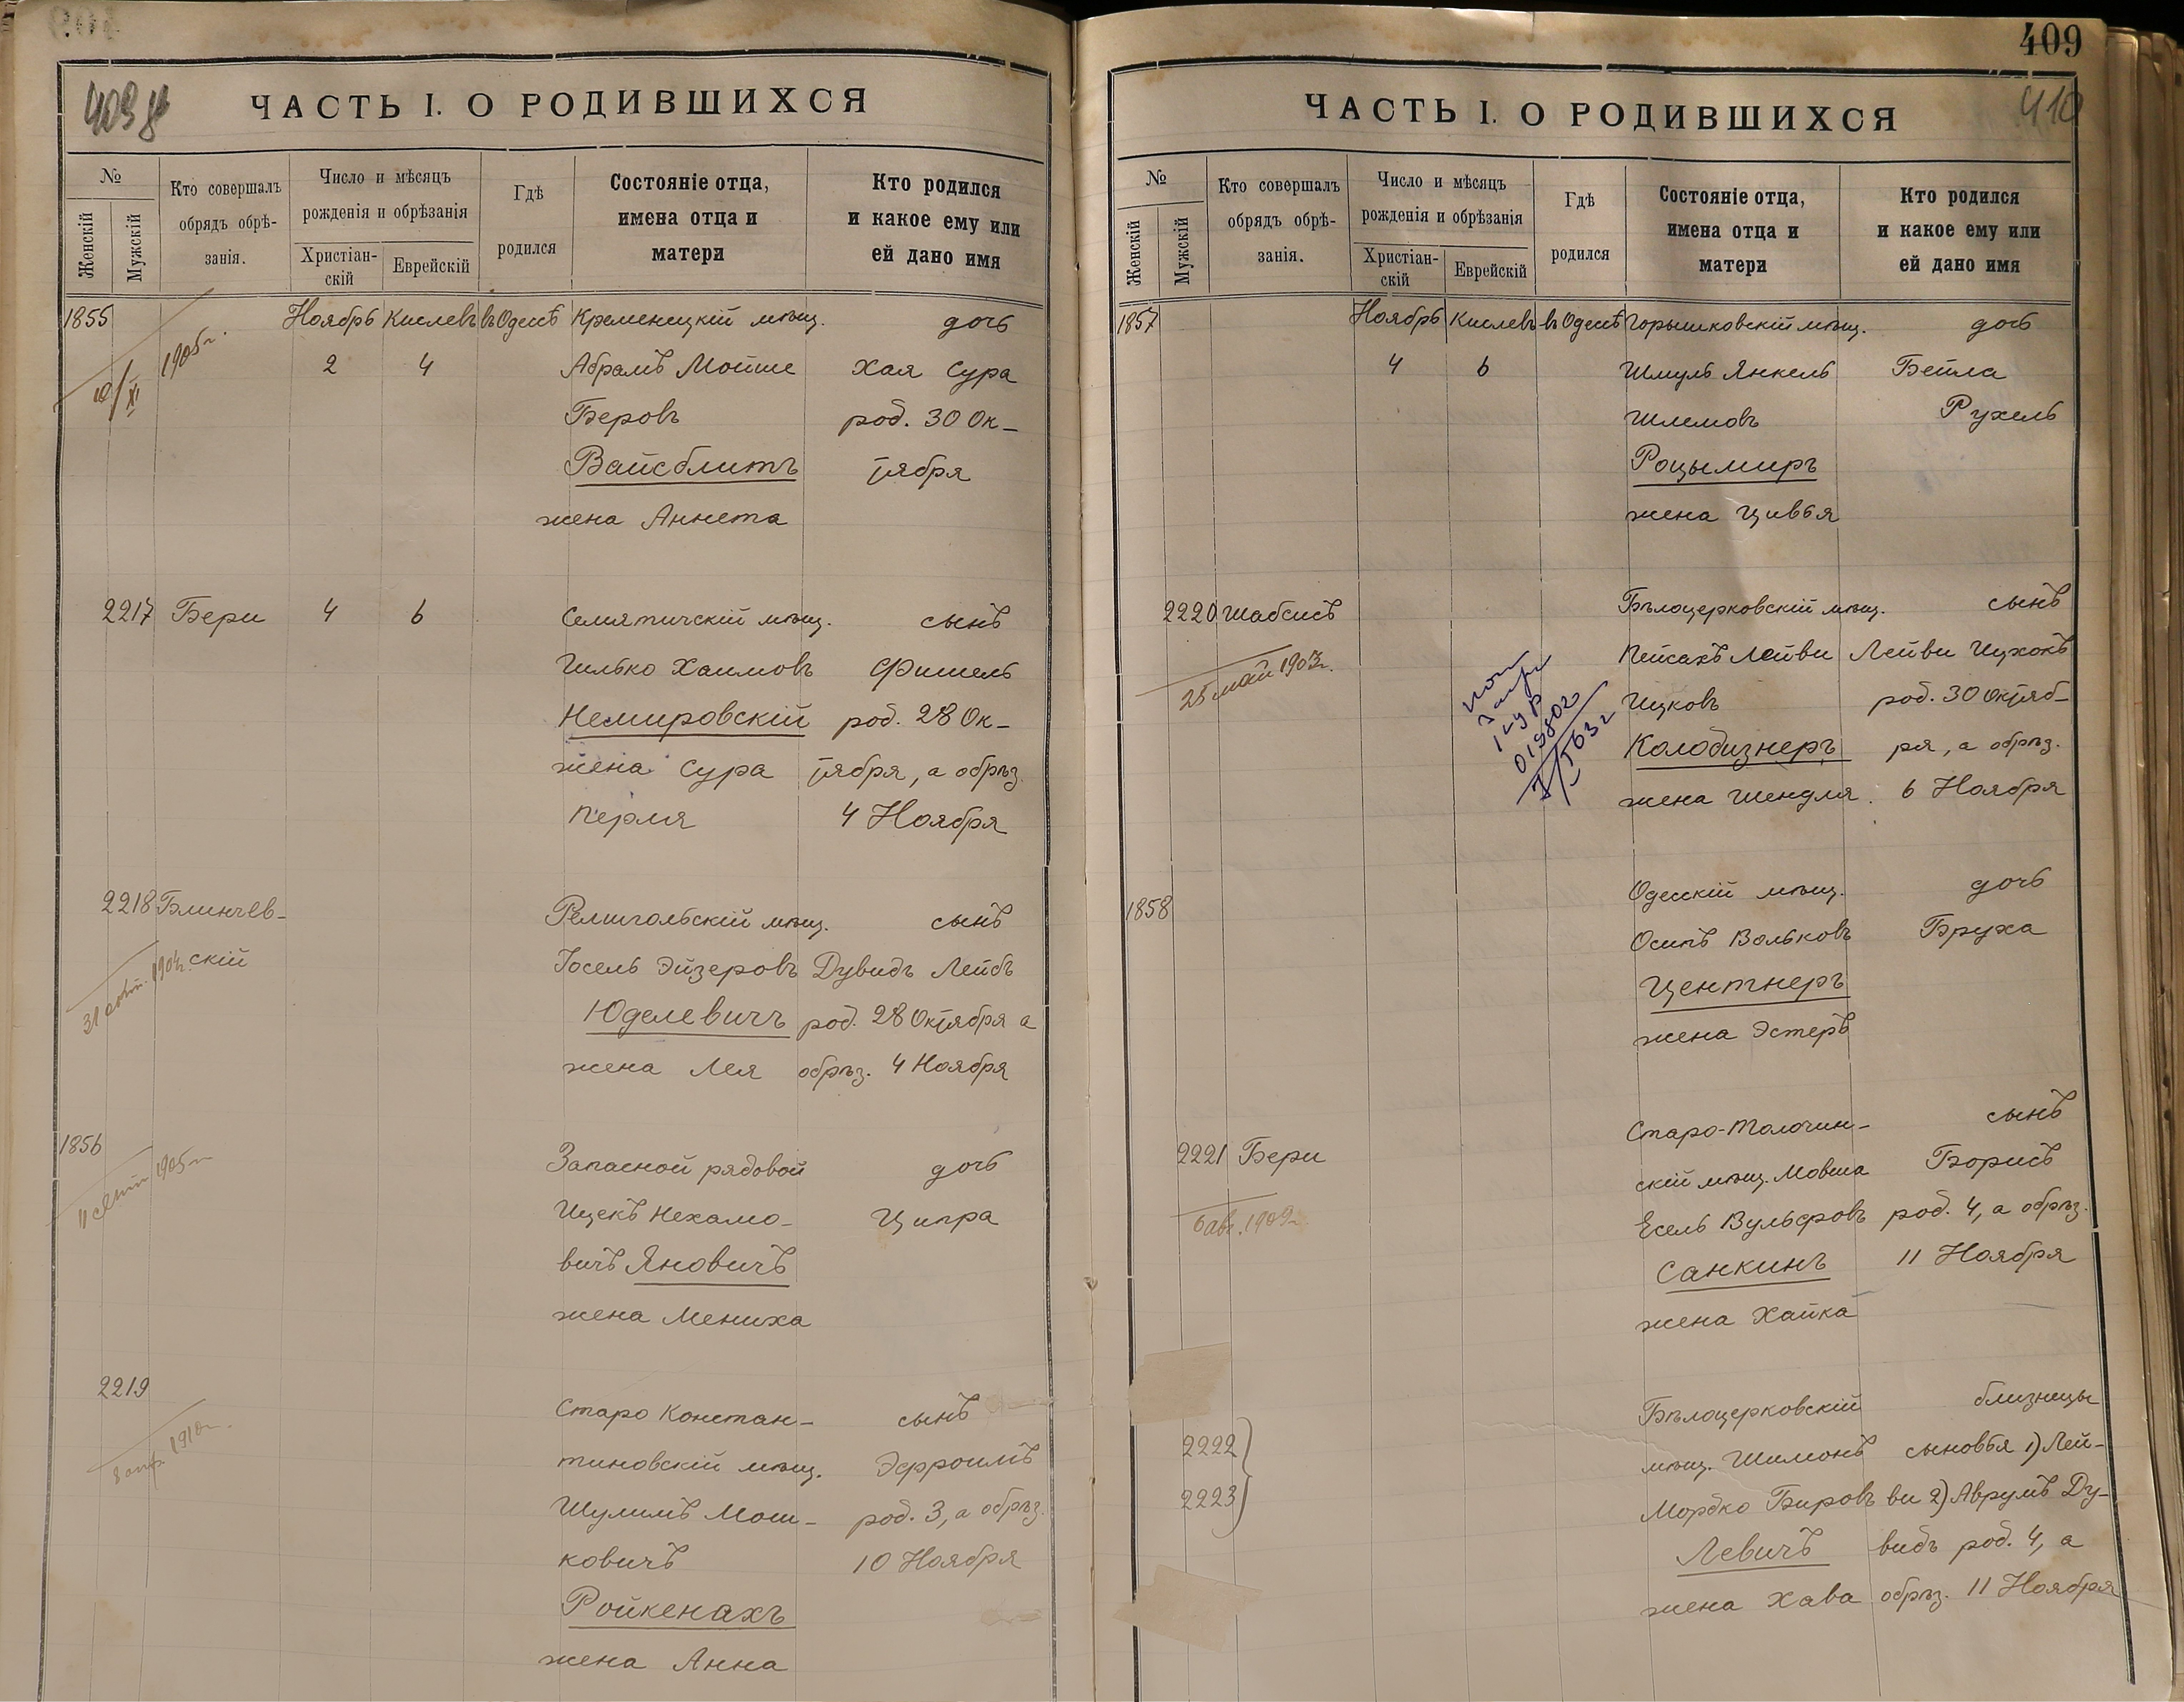 ЧАСТЬ I. О РОДИВШИХСЯ
№
Женскій
Мужскій
Кто совершалъ
обрядъ обрѣ-
занія.
Число и мѣсяцъ
рожденія и обрѣзанія
Христіан-
скій
Еврейскій
Гдѣ
родился
Состояніе отца,
имена отца и
матери
Кто родился
и какое ему или
ей дано имя
1855 Ноябрь Кислевъ въ Одессѣ Кременецкій мѣщ. дочь
1905г. 2 4 Абрамъ Мойше Хая Сура
Беровъ род. 30 Ок-
Вайсблитъ тября
жена Аннета
2217 Бери 4 6 Семятичскій мѣщ. сынъ
Гилько Хаимовъ Фишель
Немировскій род. 28 Ок-
жена Сура тября, а обрѣз.
Перля 4 Ноября
2218 Блинчев- Ремигольскій мѣщ. сынъ
скій Іосель Эйзеровъ Дувидъ Лейбъ
1904г. Юделевичъ род. 28 Октября а
жена Лея обрѣз. 4 Ноября
1856 Запасной рядовой дочь
1905г. Ицекъ Нехамо- Ципра
вичъ Яновичъ
жена Мениха
2219 Старо Констан- сынъ
1910г. тиновскій мѣщ. Эфроимъ
Шулимъ Мош- род. 3, а обрѣз.
ковичъ 10 Ноября
Ройкенахъ
жена Анна
409
410
ЧАСТЬ I. О РОДИВШИХСЯ
№
Женскій
Мужскій
Кто совершалъ
обрядъ обрѣ-
занія.
Число и мѣсяцъ
рожденія и обрѣзанія
Христіан-
скій
Еврейскій
Гдѣ
родился
Состояніе отца,
имена отца и
матери
Кто родился
и какое ему или
ей дано имя
1857 Ноябрь Кислевъ въ Одессѣ Горышковскій мѣщ. дочь
4 6 Шмуль Янкель Бейла
Шлемовъ Рухель
Роцымиръ
жена Цивья
2220 Шабсисъ Бѣлоцерковскій мѣщ. сынъ
25 май 1903г. Пейсахъ Лейви Лейви Ицхокъ
Ицковъ род. 30 Октяб-
Колодизнеръ ря, а обрѣз.
жена Шендля. 6 Ноября
1858 Одесскій мѣщ. дочь
Осипъ Вольковъ Бруха
Центнеръ
жена Эстеръ
2221 Бери Старо-Толочин- сынъ
скій мѣщ. Мовша Борисъ
6 авг. 1909г. Есель Вульфровъ род. 4, а обрѣз.
Санкинъ 11 Ноября
жена Хайка
Бѣлоцерковскій близнецы
2222 мѣщ. Шимонъ сыновья 1) Лей-
2223 Мордко Бировъ ви 2) Аврумъ Ду-
Левичъ видъ род. 4, а
жена Хава обрѣз. 11 Ноября